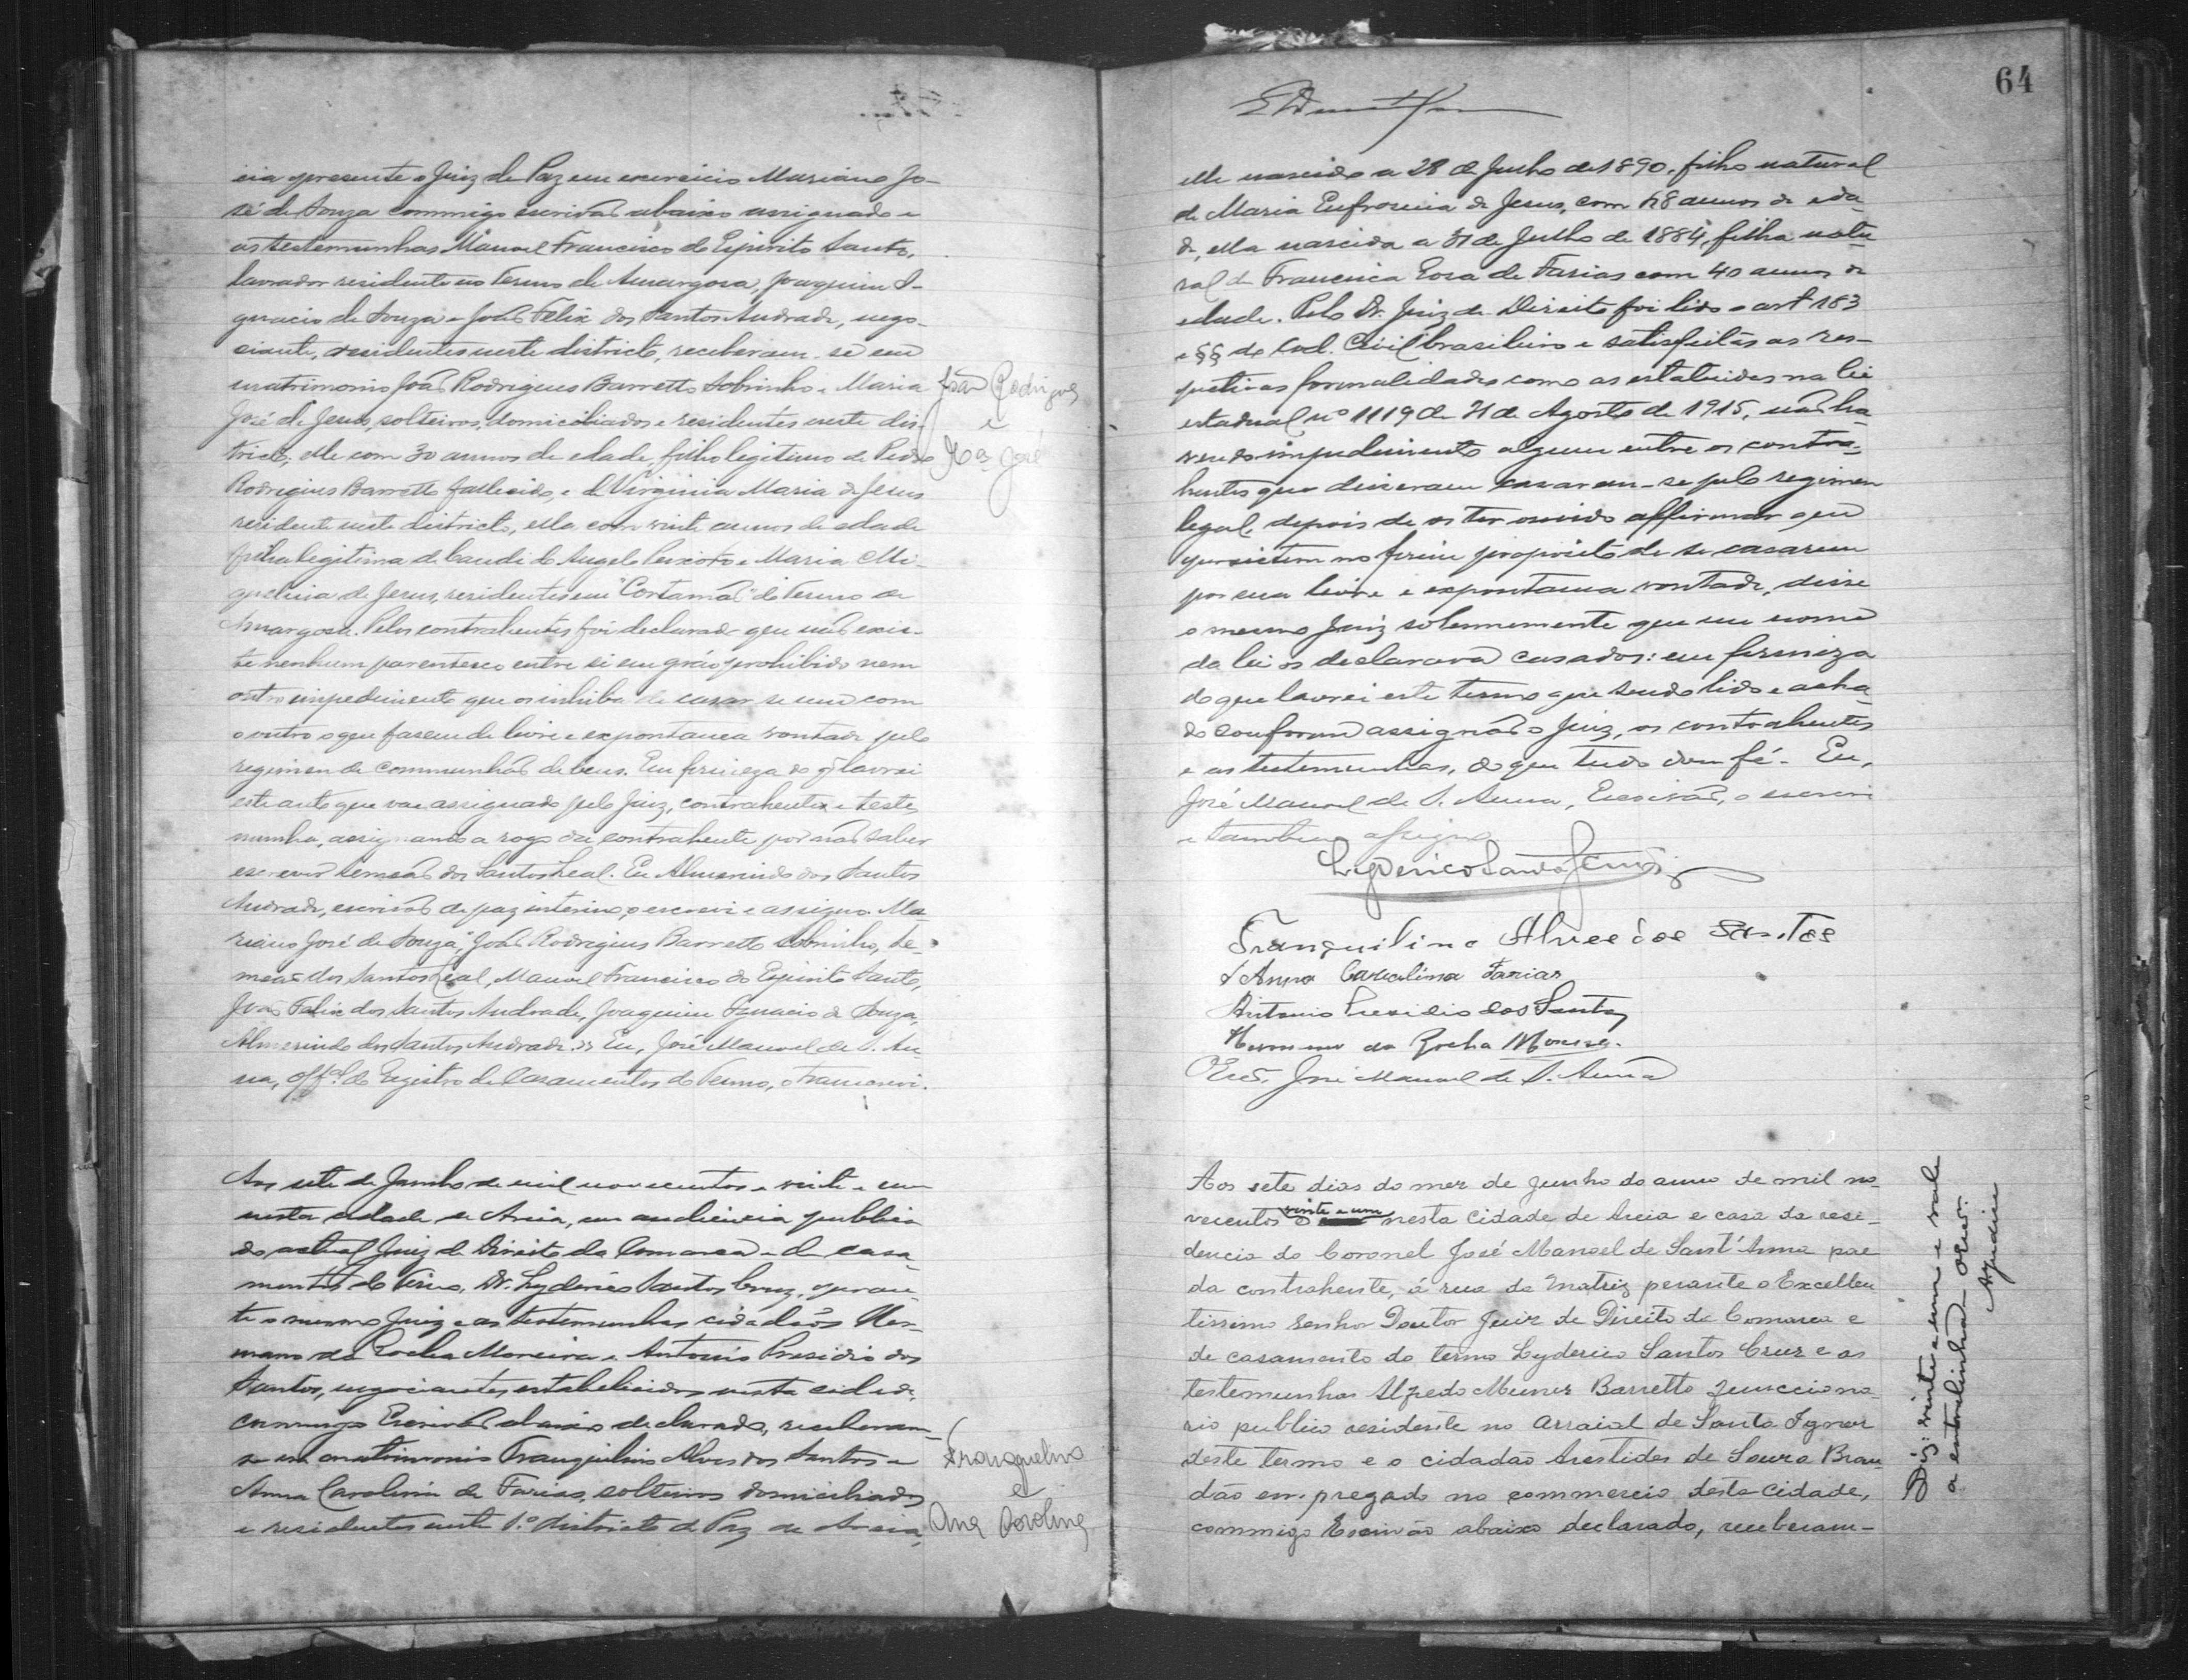 cia presente o Juiz de Paz em exercicio Mariano Jo-
sé de Souza commigo escrivão abaixo assignado e
as testemunhas Manoel Francisco do Espirito Santo,
lavrador residente no Termo de Amargosa, Joaquim I-
gnacio de Souza e João Felix dos Santos Andrade, nego-
ciante, residentes neste districto, receberam-se em
matrimonio João Rodrigues Barretto Sobrinho e Maria
José de Jesus, solteiros, domiciliados e residentes neste dis-
tricto; elle com 30 annos de edade, filho legitimo de Pedro
Rodrigues Barretto fallecido, e D. Virginia Maria de Jesus
residente neste districto, ella com vinte annos de edade
filha legitima de Angelo Peixoto e Maria Mi-
guelina de Jesus, residentes em "Corta-mão" do Termo de
Amargosa. Pelos contrahentes foi declarado que não exis-
te nenhum parentesco entre si em gráo prohibido nem
outro impedimento que os inhiba de casar-se um com
o outro o que fasem de livre e expontanea vontade pelo
regimen de communhão de bens. Em firmeza do q̃ lavrei
este auto que vae assignado pelo Juiz, contrahentes e teste-
munha, assignando a rogo da contrahente por não saber
escrever Simeão dos Santos Leal. Eu Almerindo dos Santos
Andrade, escrivão de paz interino, o escrevi e assigno. Ma-
riano José de Souza, João Rodrigues Barretto Sobrinho, Se-
meão dos Santos Leal, Manoel Francisco do Espirito Santo,
João Felix dos Santos Andrade, Joaquim Ignacio de Souza,
Almerindo dos Santos Andrade. Eu, José Manoel de S. An-
na, Offal do Registro de Casamentos do Termo, o transcrevi.
João Rodrigues
e
Ma José
Aos sete de Junho de mil novecentos e vinte e um
nesta cidade de Areia, em audiencia publica
do actual Juiz de Direito da Comarca e de casa-
mentos do Termo, Dr. Lyderico Santos Cruz, peran-
te o mesmo Juiz e as testemunhas cidadãos Her-
mano da Rocha Moreira e Antonio Presidio dos
Santos, negociantes estabelecidos nesta cidade,
commigo Escrivão abaixo declarado, receberam-
se em matrimonio Tranquilino Alves dos Santos e
Anna Carolina de Farias, solteiros domiciliados
e residentes neste 1.º districto de Paz de Areia,
Tranquelino
e
Ana Carolina
64
elle nascido a 28 de Junho de 1890, filho natural
de Maria Eufrosina de Jesus, com 48 annos de eda-
de, ella nascida a 31 de Julho de 1884, filha natu-
ral de Francisca Rosa de Farias com 40 annos de
edade. Pelo Dr. Juiz de Direito foi lido o art 183
e §§ do Cod. Civil brasileiro e satisfeitas as res-
pectivas formalidades como as estatuidas na lei
estadual nº 1119 de 21 de Agosto de 1915, não ha-
vendo impedimento algum entre os contra-
hentes que disseram casarem-se pelo regimen
legal, depois de os ter ouvido affirmar que
persistem no firme proposito de se casarem
por sua livre e expontanea vontade, disse
o mesmo Juiz solemnemente que em nome
da lei os declarava casados: em firmeza
do que lavrei este termo que sendo lido e acha-
do conforme assignão o Juiz, os contrahentes
e as testemunhas, do que tudo dou fé. Eu,
José Manoel de S. Anna, Escrivão, o escrevi
e tambem assigno
Lyderico Santos Cruz
Tranquilino Alves dos Santos
Anna Carculina Farias
Antonio Presidio dos Santos
Hermano da Rocha Moreira.
O Escr. José Manoel de S. Anna
Aos sete dias do mez de Junho do anno de mil no-
vecentos e vinte e um nesta Cidade de Areia e casa da resi-
dencia do Coronel José Manoel de Sant'Anna pae
da contrahente, á rua da Matriz perante o Excellen-
tissimo Senhor Doutor Juiz de Direito da Comarca e
de casamento do termo Lyderico Santos Cruz e as
testemunhas Alfredo Muniz Barretto Funcciona-
rio publico residente no arraial de Santa Ignez
deste termo e o cidadão Arestides de Souza Bran-
dão empregado no commercio desta Cidade,
commigo Escrivão abaixo declarado, receberam-
Diz: vinte e um e vale
a entrelinha. O Escr.